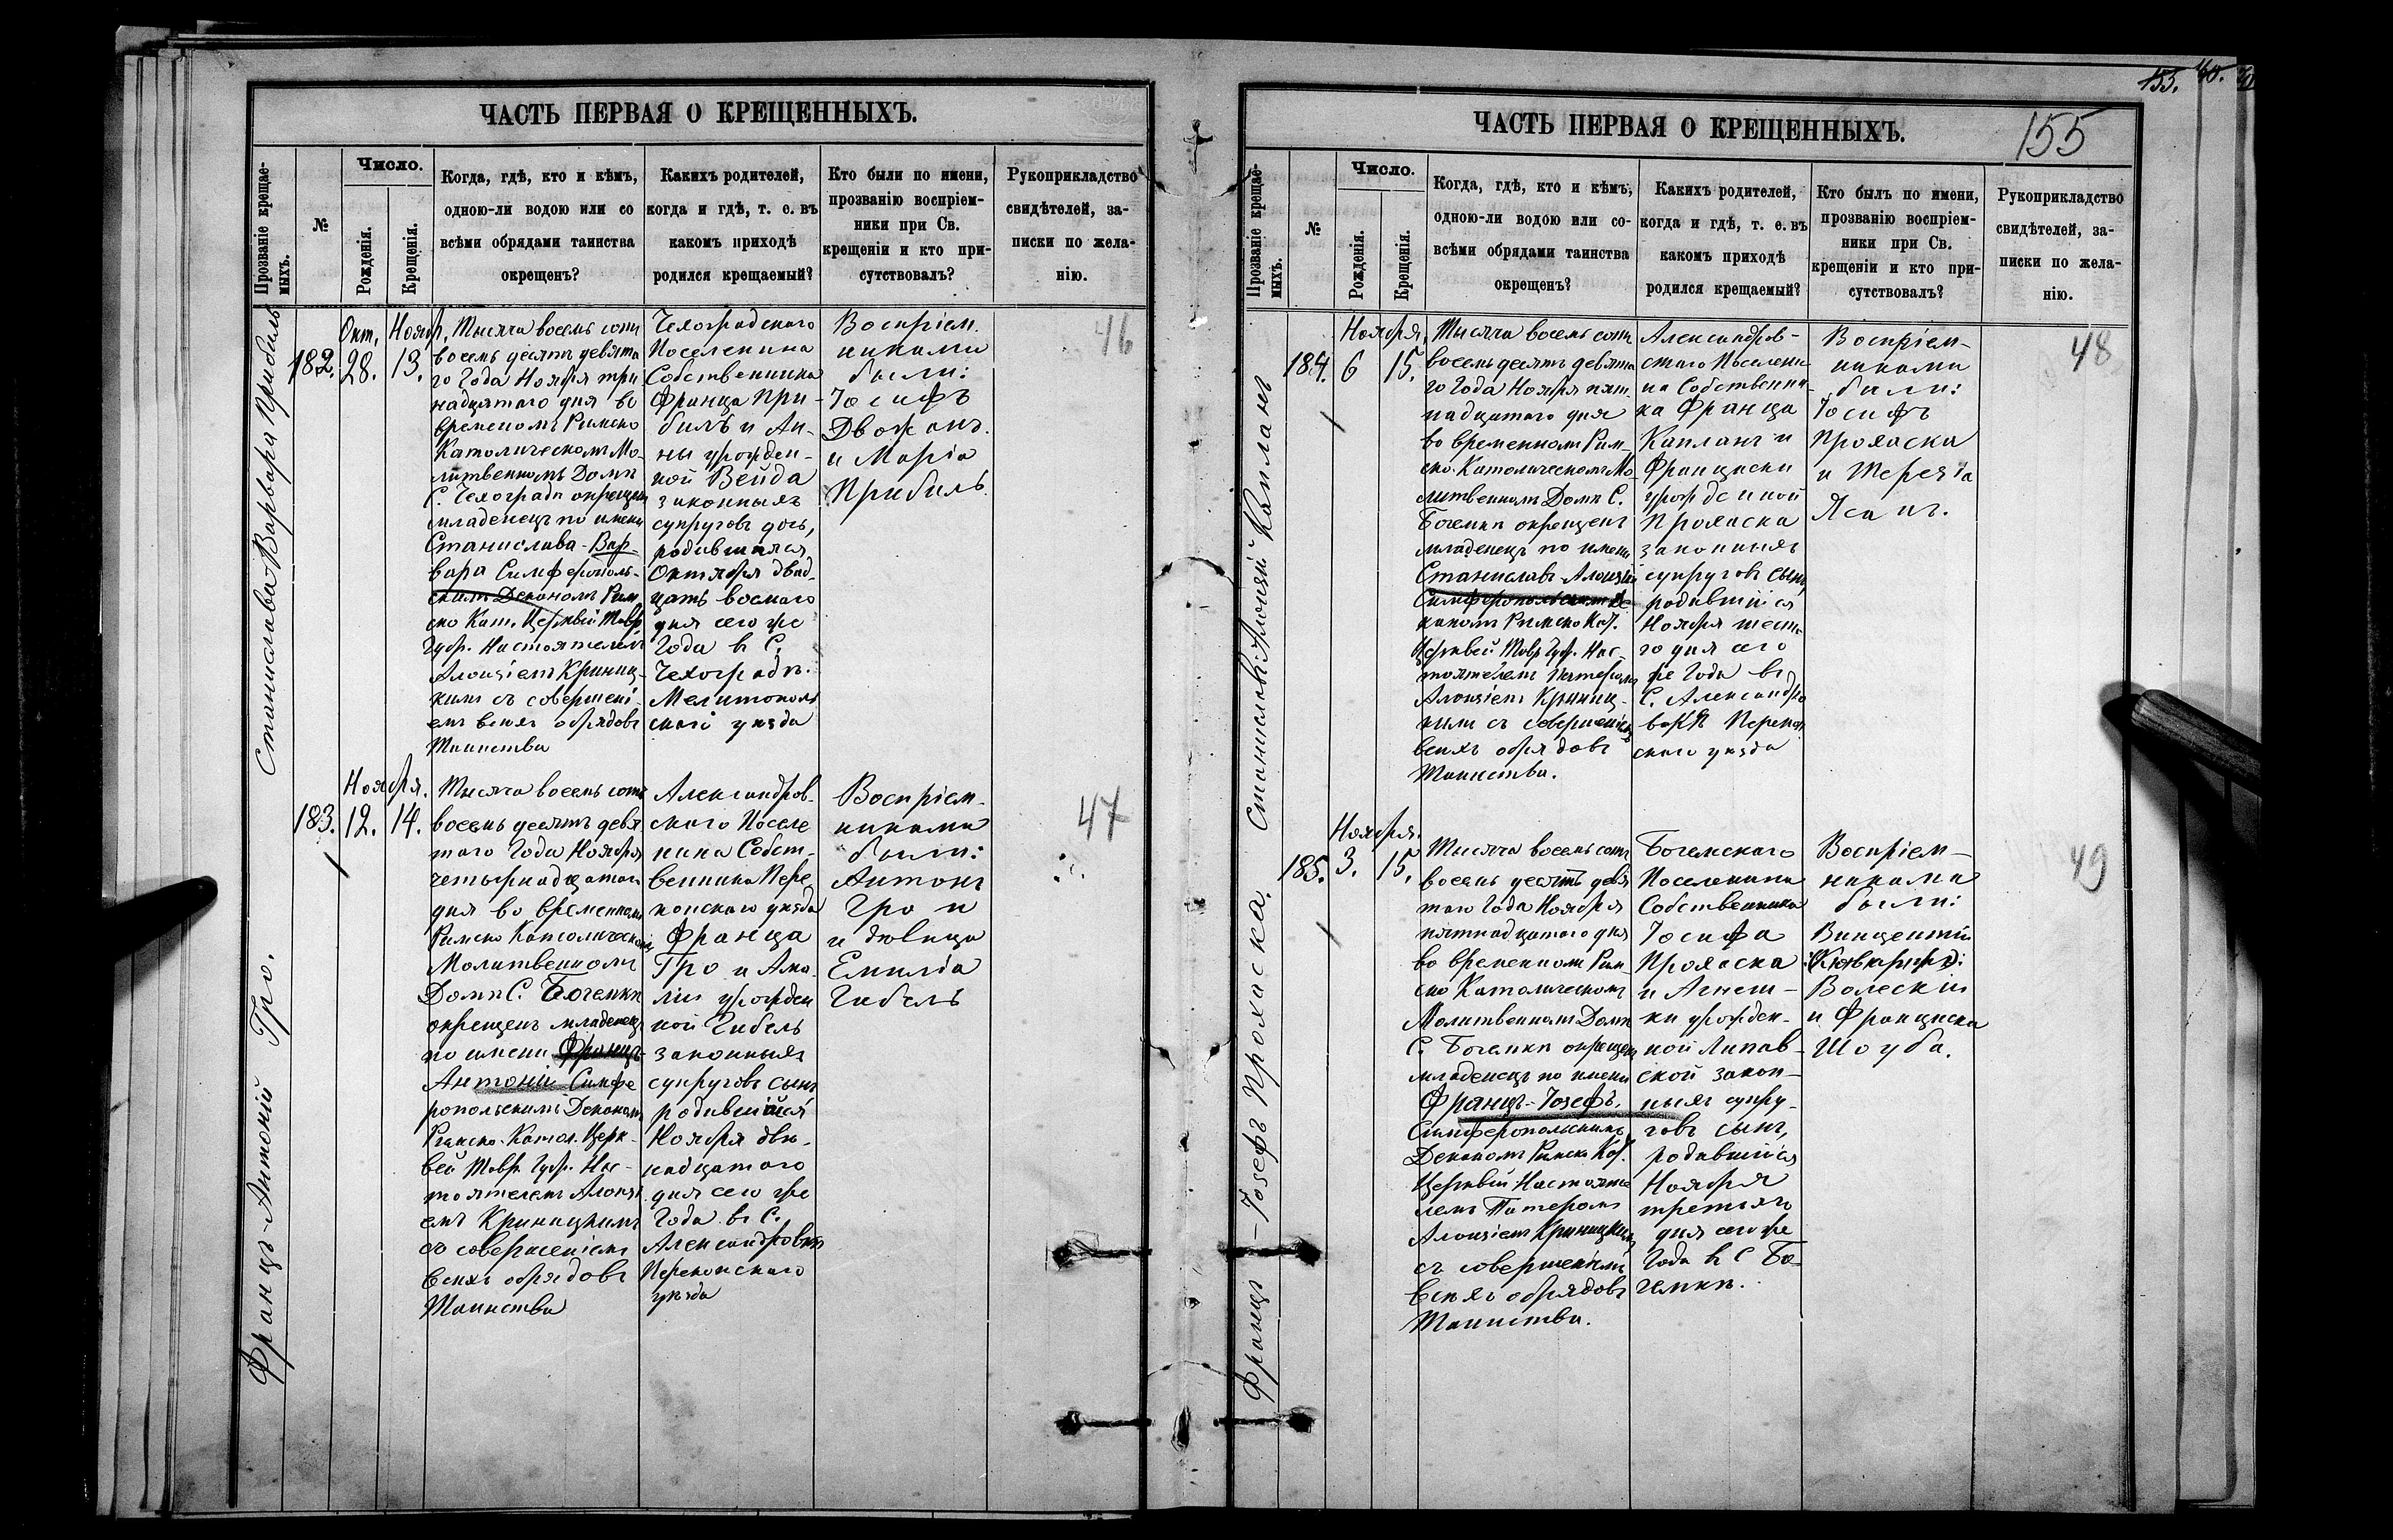 155. 40.
155
ЧАСТЬ ПЕРВАЯ О КРЕЩЕННЫХЪ.
Прозваніе крещае-
мыхъ.
№
Число.
Рожденія.
Крещенія.
Когда, гдѣ, кто и кѣмъ,
одною-ли водою или со
всѣми обрядами таинства
окрещенъ?
Какихъ родителей,
когда и гдѣ, т. е. въ
какомъ приходѣ
родился крещаемый?
Кто были по имени,
прозванію воспріем-
ники при Св.
крещеніи и кто при-
сутствовалъ?
Рукоприкладство
свидѣтелей, за-
писки по жела-
нію.
Станислава Варвара Прибиль
182.
Окт.
28.
Ноября.
13.
Тысяча восемь сотъ
восемь десятъ девята
го Года Ноября три
надцатого дня во
временомъ Римско
Католическомъ Мо-
литвенномъ Домѣ
С. Чехоградѣ окрещенъ
младенецъ по имени
Станислава-Вар-
вара Симферополь-
скимъ Деканомъ Рим
ско Кат. Церквій Тавр
Губ. Настоятелемъ
Алоизіемъ Криниц-
кимъ съ совершені-
емъ всехъ обрядовъ
Таинства
Чехоградского
Поселенина
Собственника
Франца При-
биль и Ан-
ны урожден-
ной Вейда
законныхъ
супруговъ дочь,
родившаяся
Октября двад-
цать восмого
дня сего же
Года въ С.
Чехоградѣ.
Мелитополь
ского уѣзда
Воспріем-
никами
были:
Іосифъ
Дворжакъ.
и Марія
Прибиль.
46
Францъ-Антоній Гро.
183.
Ноября.
12.
14.
Тысяча восемь сотъ
восемь десятъ девя
того Года Ноября
четырнадцатого
дня во временномъ
Римско Католическомъ
Молитвенномъ
Домѣ С. Богемкѣ
окрещенъ младенецъ
по имени Францъ-
Антоній Симфе
ропольскимъ Деканомъ
Римско-Катол. Церк-
вей Тавр. Губр. Нас-
тоятелемъ Алоизі
емъ Криницкимъ
съ совершеніемъ
всехъ обрядовъ
Таинства
Александров-
ского Поселе
нина Собст-
венника Пере
копского уѣзда
Франца
Гро и Ама-
ліи урожден
ной Гибель
законныхъ
супруговъ сынъ
родившійся
Ноября двѣ-
надцатого
дня сего же
Года въ С.
Александровкѣ
Перекопского
уѣзда
Воспріем-
никами
были:
Антонъ
Гро и
и дѣвица
Емилія
Гибель
47
ЧАСТЬ ПЕРВАЯ О КРЕЩЕННЫХЪ.
Прозваніе крещае-
мыхъ.
№
Число.
Рожденія.
Крещенія.
Когда, гдѣ, кто и кѣмъ,
одною-ли водою или со-
всѣми обрядами таинства
окрещенъ?
Какихъ родителей,
когда и гдѣ, т. е. въ
какомъ приходѣ
родился крещаемый?
Кто былъ по имени,
прозванію воспріем-
ники при Св.
крещеніи и кто при-
сутствовалъ?
Рукоприкладство
свидѣтелей, за-
писки по жела-
нію.
Станиславъ-Алоизій Капланъ
184.
Ноября.
6
15.
Тысяча восемь сотъ
восемь десятъ девята
го Года Ноября пят-
надцатого дня
во временномъ Рим-
ско-Католическомъ Мо
литвенномъ Домѣ С.
Богемкѣ окрещенъ
младенецъ по имени
Станиславъ-Алоизій
Симферопольскимъ Де
каномъ Римско Кат.
Церквей Тавр Губр. Нас-
тоятелемъ Патеромъ
Алоизіемъ Криниц-
кимъ съ совершеніемъ
всехъ обрядовъ
Таинства.
Александров-
ского Поселени
на Собственни-
ка Франца
Капланъ и
Франциски
урожденной
Прохаска
законныхъ
супруговъ сынъ,
родившійся
Ноября шесто
го дня сего
же Года въ
С. Александро
вокѣ Перекоп
ского уѣзда
Воспріем-
никами
были:
Іосифъ
Прохаска
и Терезія
Ясанъ.
48
Францъ-Іозефъ Прохаска.
185.
Ноября.
3.
15.
Тысяча восемь сотъ
восемь десятъ девя
того Года Ноября
пятнадцатого дня
во временномъ Рим-
ско Католическомъ
Молитвенномъ Домѣ
С. Богемкѣ окрещенъ
младенецъ по имени
Францъ-Іозефъ.
Симферопольскимъ
Деканомъ Римско Кат.
Церквій Настояте
лемъ Патеромъ
Алоизіемъ Криницкимъ
съ совершеніемъ
Всехъ обрядовъ
Таинства.
Богемского
Поселенина
Собственника
Іосифа
Прохаска
и Агнеш-
ки урожден-
ной Липов-
ской закон-
ныхъ супру-
говъ сынъ,
родившійся
Ноября
третьего
дня сего же
Года въ С Бо-
гемкѣ.
Воспріем-
никами
были:
Винцентій
Волескій
и Франциска
Шоуба.
49